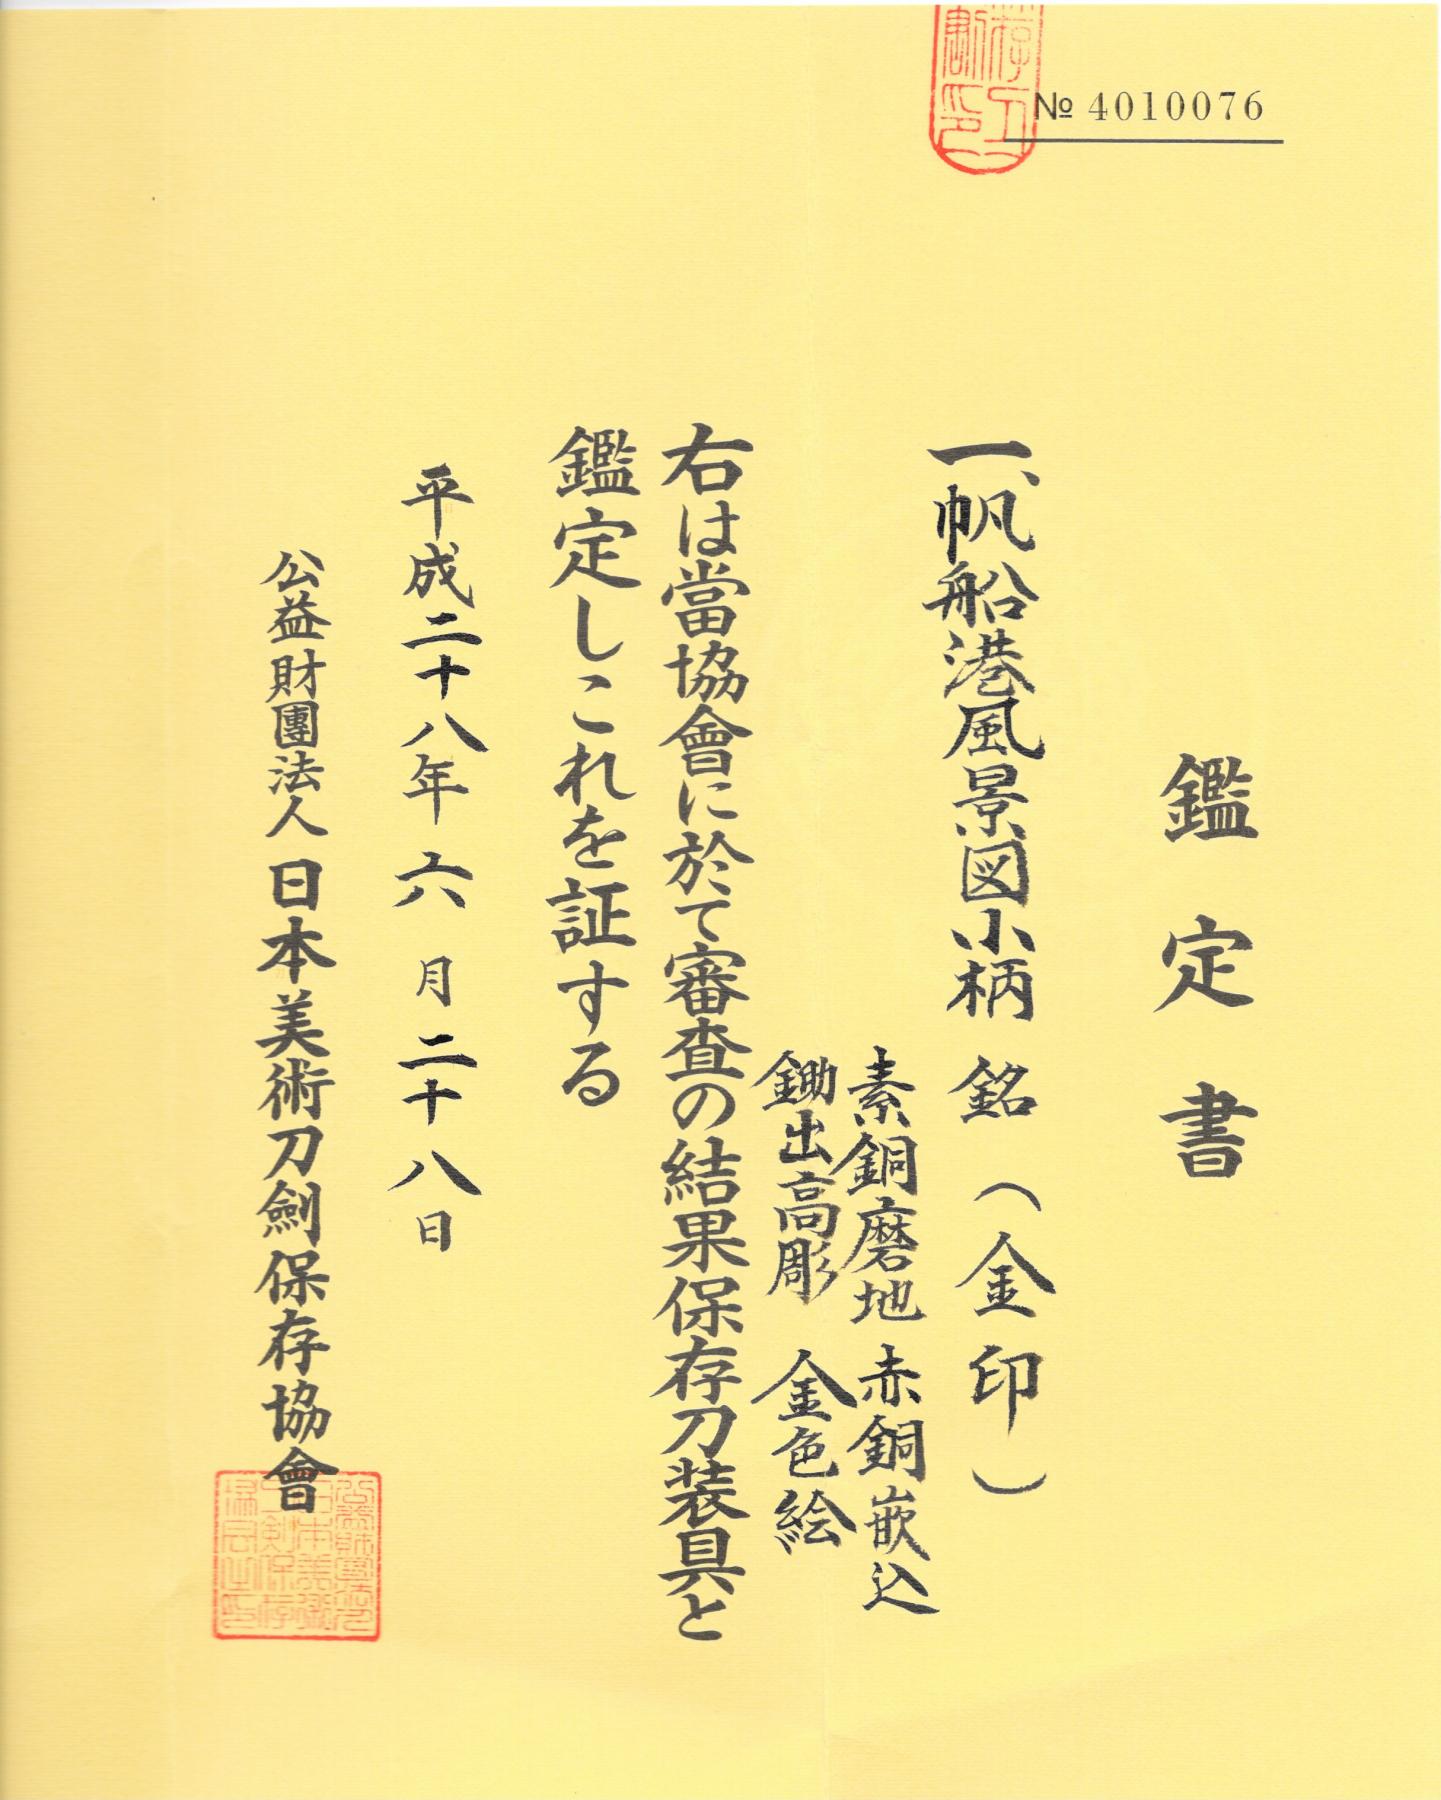 № 4010076
鑑定書
一、帆船港風景図小柄 銘(金印)
素銅磨地 赤銅嵌込
鋤出高彫 金色絵
右は當協會に於て審査の結果保存刀装具と
鑑定しこれを証する
平成二十八年 六 月 二十八日
公益財團法人 日本美術刀劍保存協會